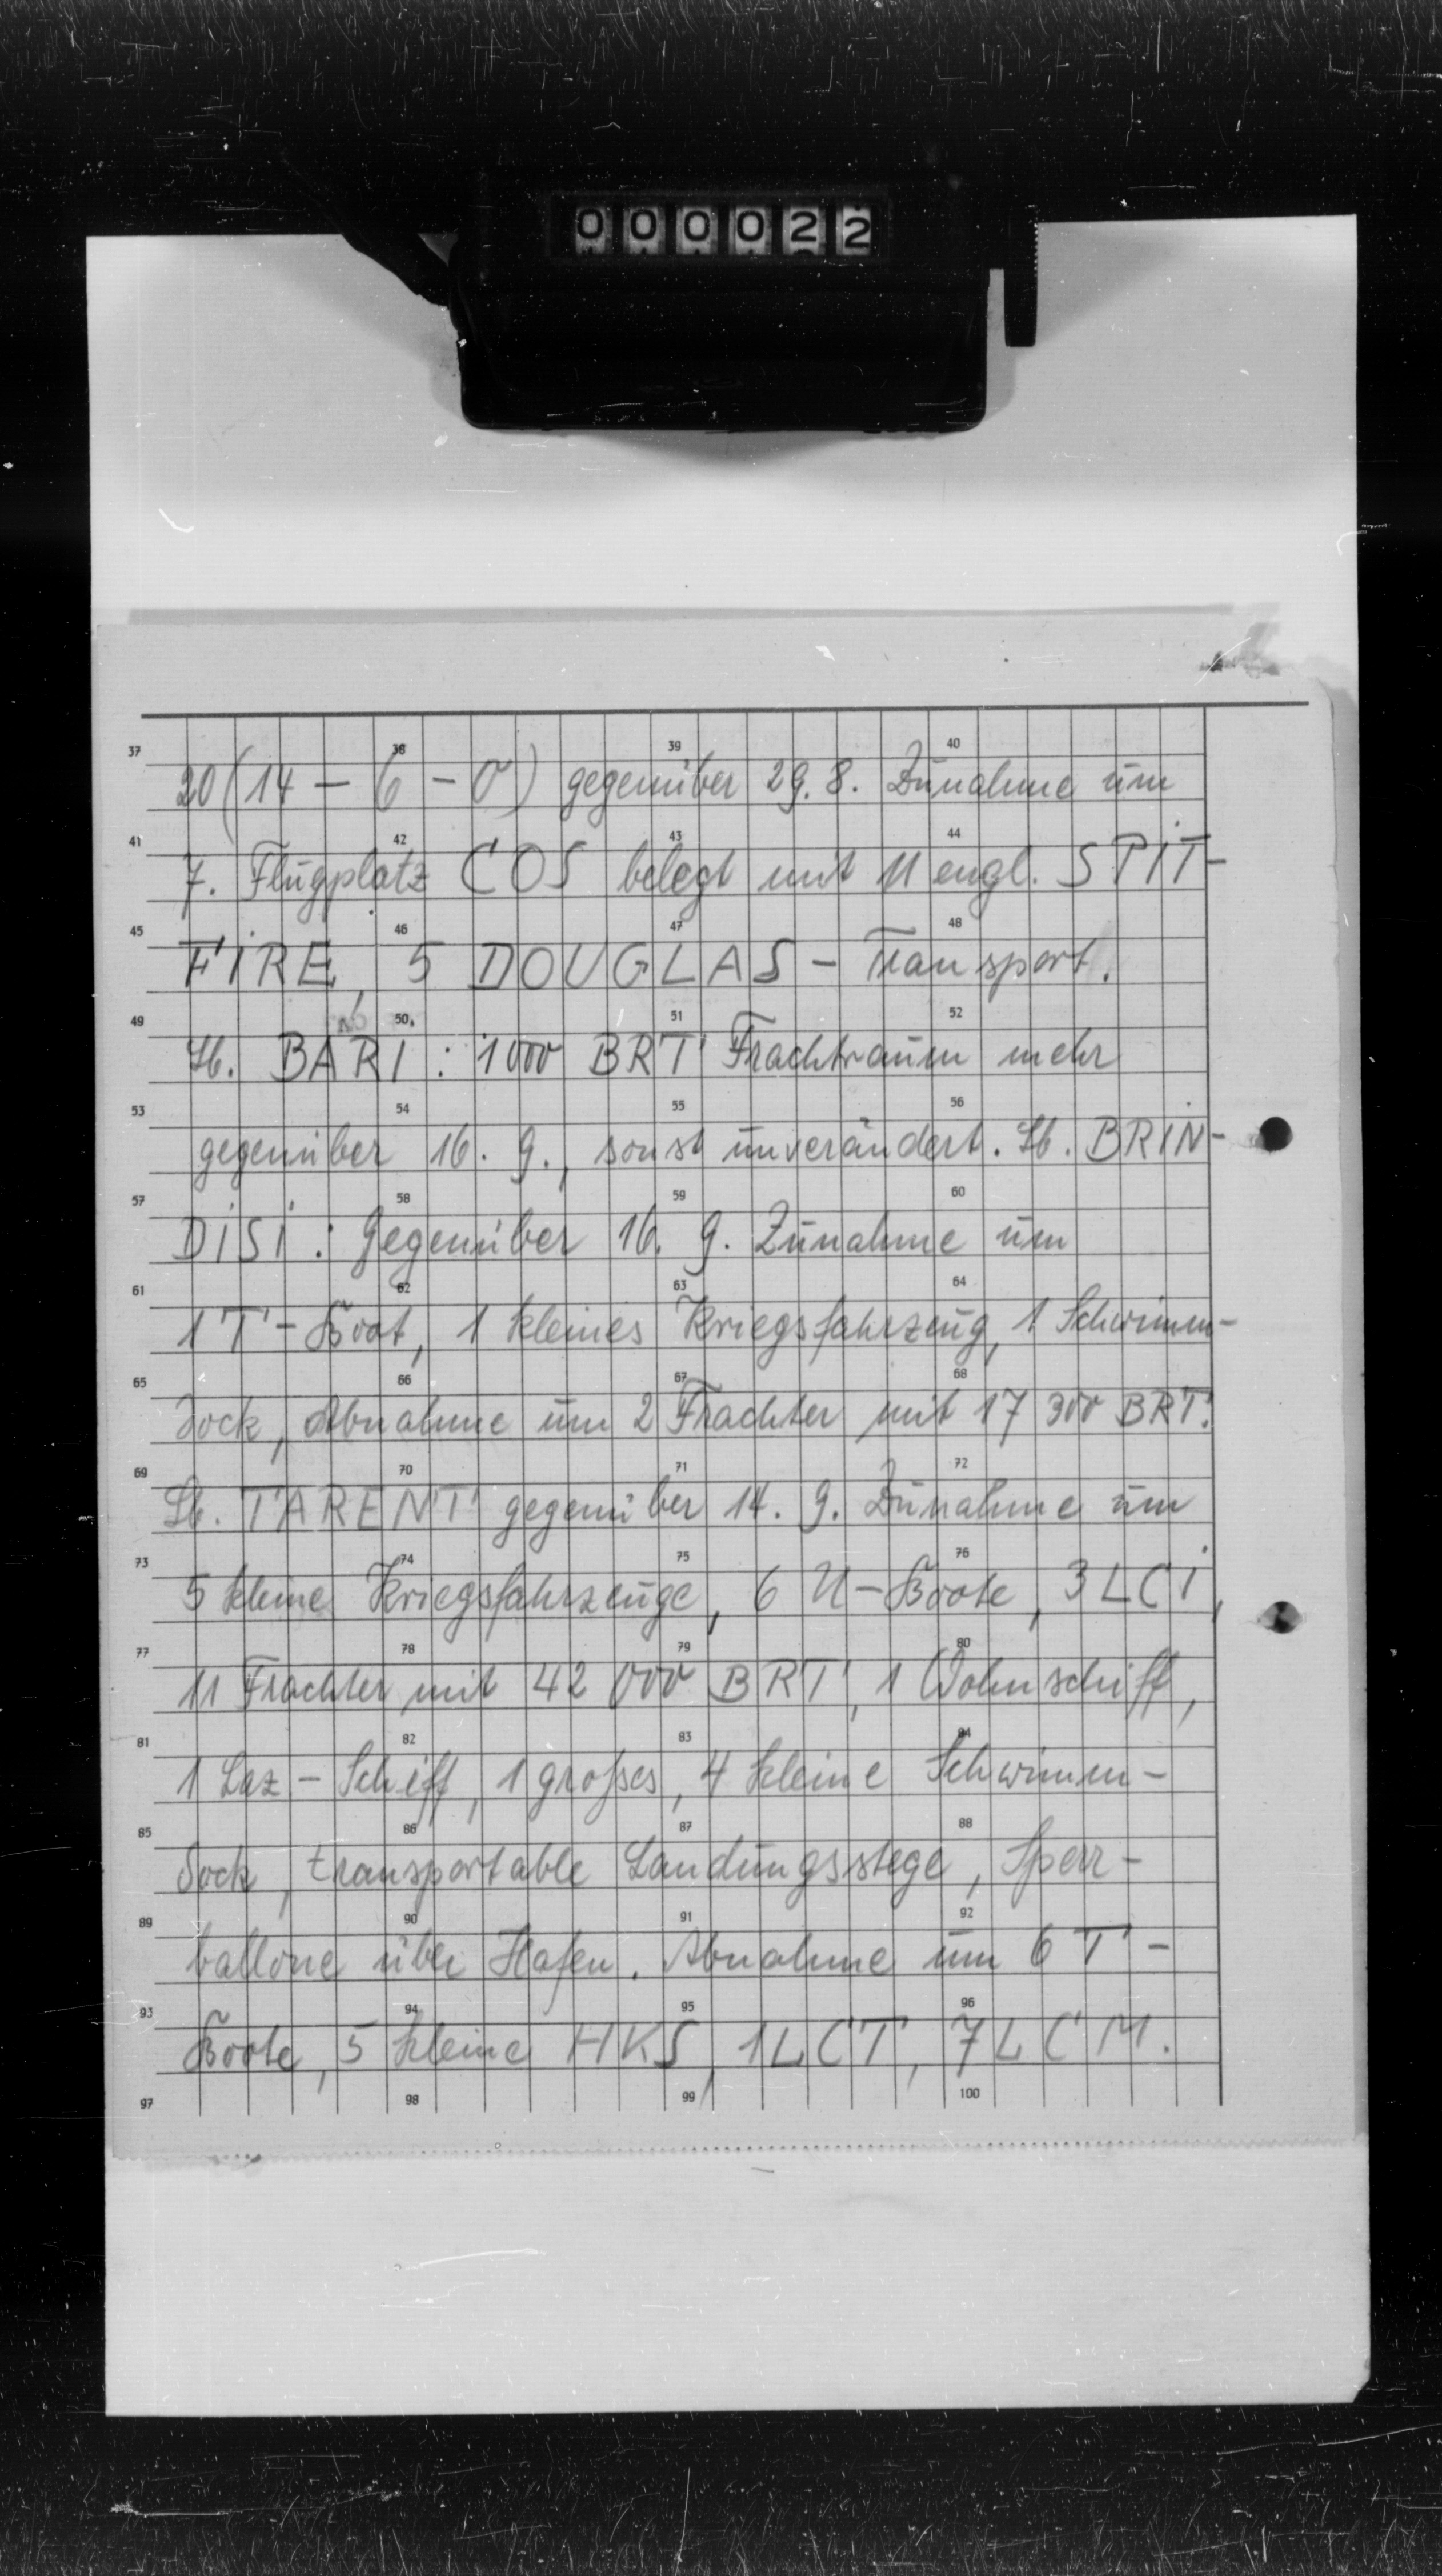 000022
37 38 39 40
20 (14 – 6 – 0) gegenüber 29. 8. Zunahme um
41 42 43 44
7. Flugplatz COS belegt mit 11 engl. SPIT-
45 46 47 48
FIRE, 5 DOUGLAS – Transport.
49 50 51 52
Lb. BARI : 1000 BRT Frachtraum mehr
53 54 55 56
gegenüber 16. 9., sonst unverändert. Lb. BRIN-
57 58 59 60
DISI : Gegenüber 16. 9. Zunahme um
61 62 63 64
1 T – Boot, 1 kleines Kriegsfahrzeug, 1 Schwimm-
65 66 67 68
dock, Abnahme um 2 Frachter mit 17 300 BRT.
69 70 71 72
Lb. TARENT gegenüber 14. 9. Zunahme um
73 74 75 76
5 kleine Kriegsfahrzeuge, 6 U – Boote, 3 LCI,
77 78 79 80
11 Frachter mit 42 000 BRT, 1 Wohnschiff,
81 82 83 84
1 Laz – Schiff, 1 großes, 4 kleine Schwimm-
85 86 87 88
dock, transportable Landungsstege, Sperr-
89 90 91 92
ballone über Hafen. Abnahme um 6 T –
93 94 95 96
Boote, 5 kleine HKS, 1 LCT, 7 LCM.
97 98 99 100